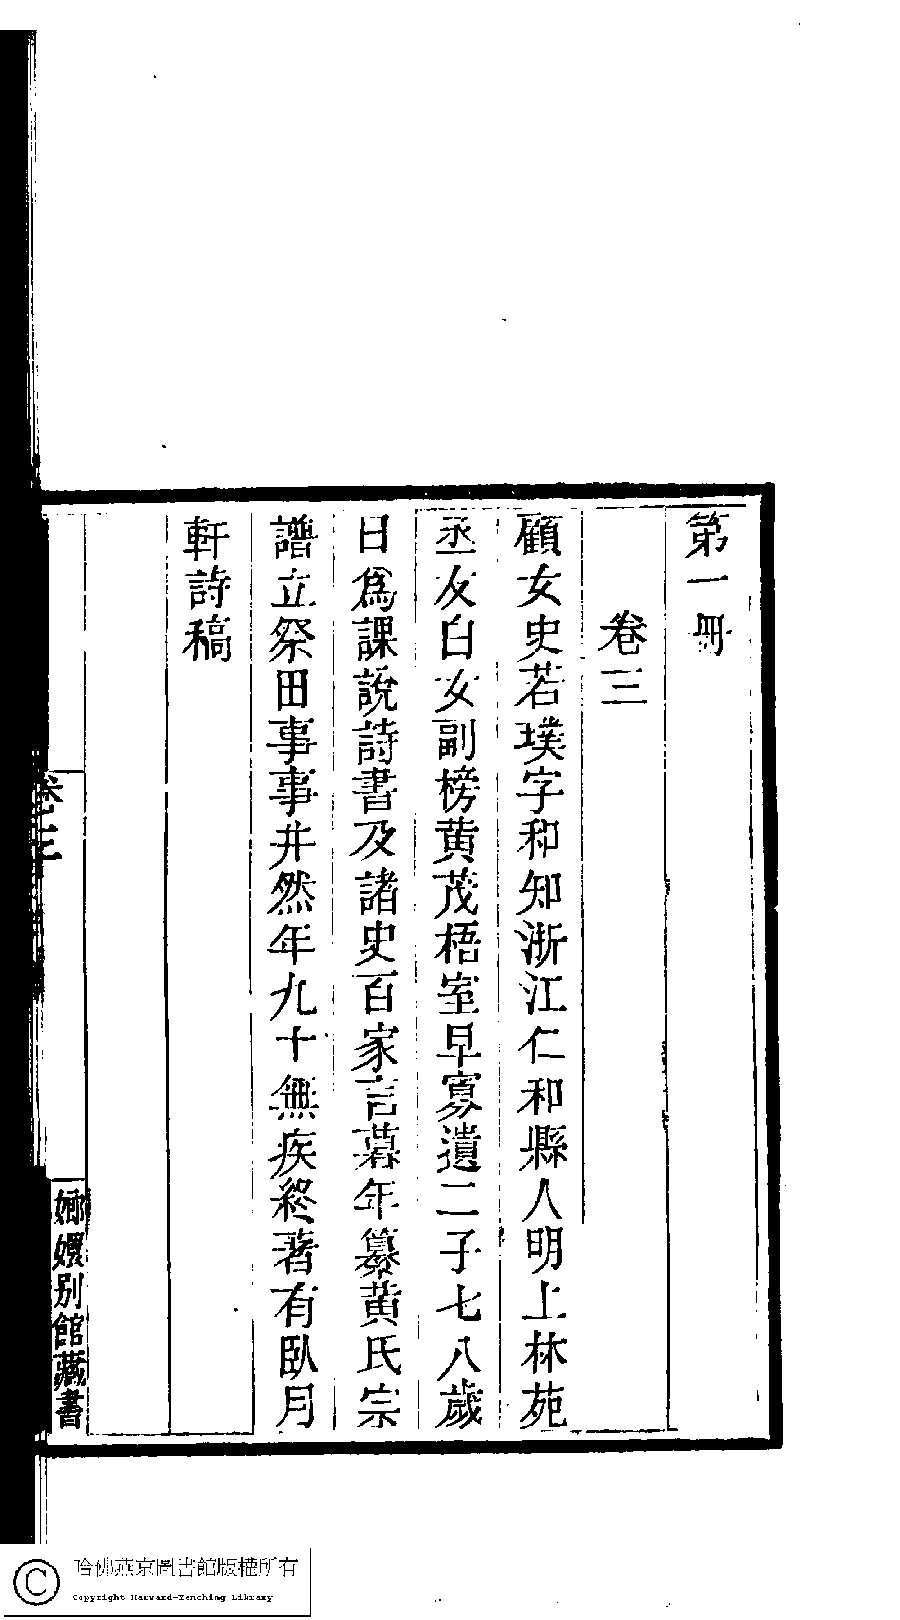 第一冊
卷三
顧女史若璞字和知浙江仁和縣人明上林苑
丞友白女副榜黄茂梧室早寡遺二子七八歲
日爲課說詩書及諸史百家言暮年纂黄氏宗
譜立祭田事事井然年九十無疾終著有臥月
軒詩稿
卷三
嫏嬛別館藏書
哈佛燕京圖書館版權所有
Copyright Harvard-Yenching Library